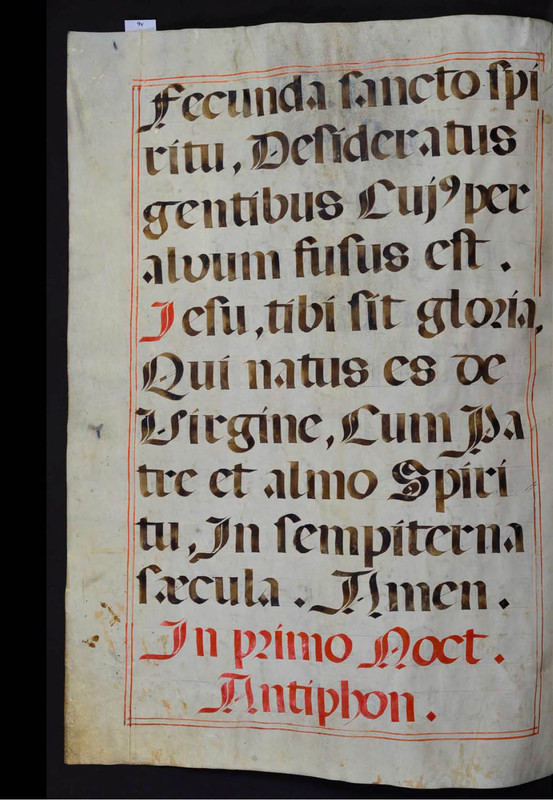 9v
Fecunda sancto spi
ritu, Desideratus
gentibus Cujꝰ per
alvum fusus est.
Jesu, tibi sit gloria,
Qui natus es de
Virgine, Cum Pa
tre et almo Spiri
tu, In sempiterna
sæcula. Amen.
In primo Noct.
Antiphon.